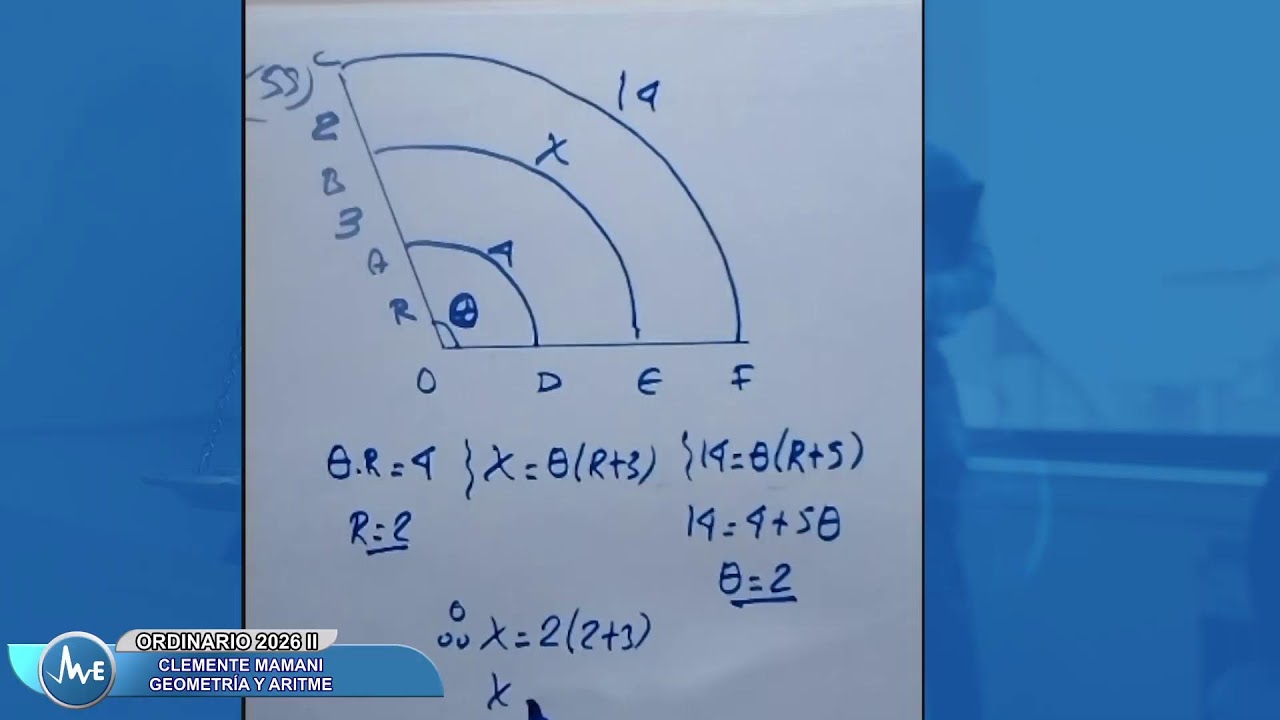 55)
C
14
2
X
B
3
4
A
R
θ
O D E F
θ.R=4 } X=θ(R+3) } 14=θ(R+5)
R=2
14=4+5θ
θ=2
∴ X=2(2+3)
X
ORDINARIO 2026 II
CLEMENTE MAMANI
GEOMETRÍA Y ARITME